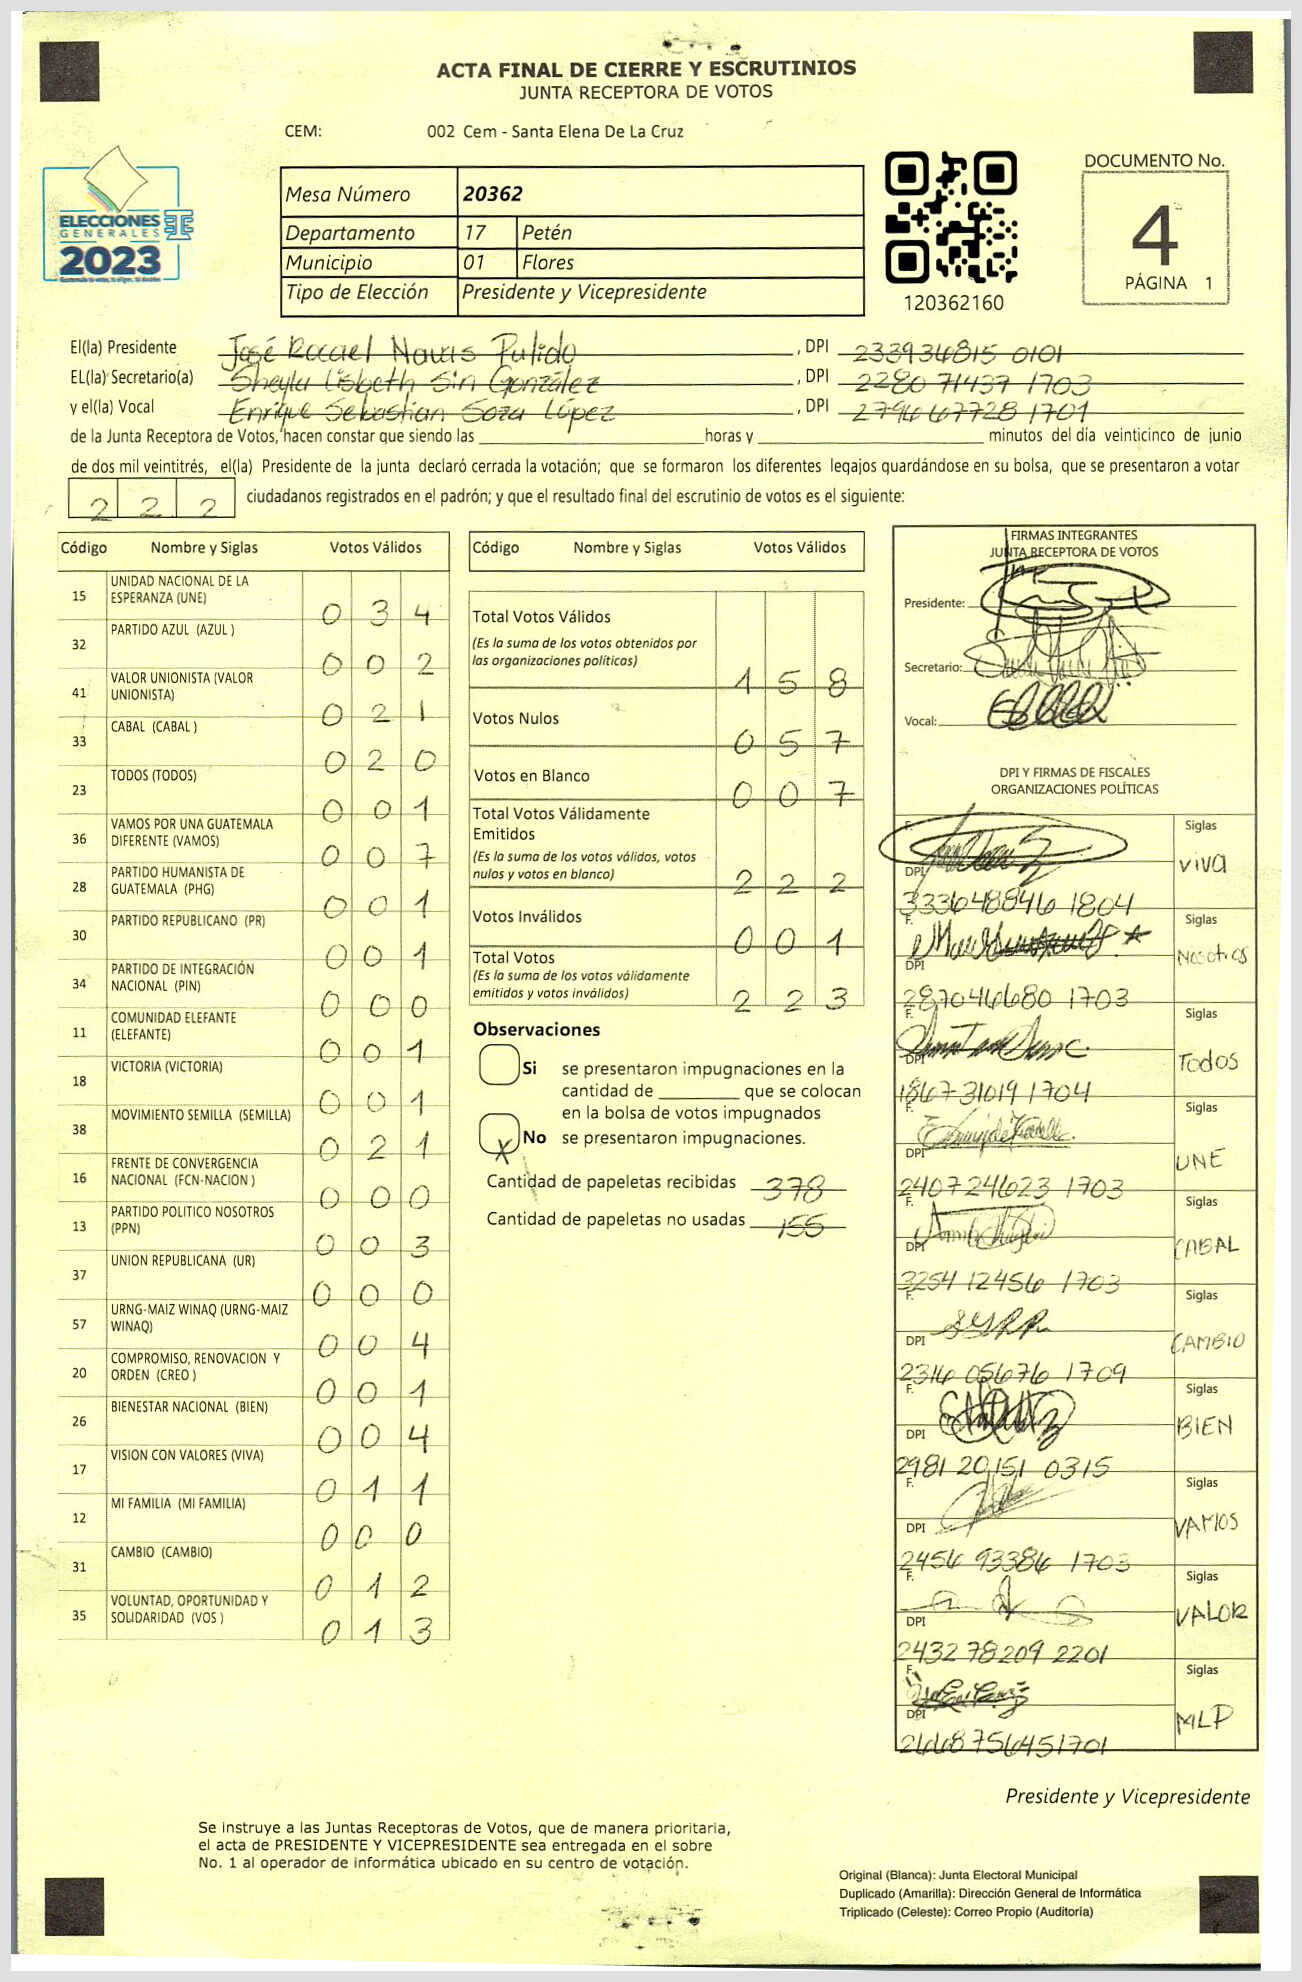 ACTA FINAL DE CIERRE Y ESCRUTINIOS
JUNTA RECEPTORA DE VOTOS
CEM: 002 Cem - Santa Elena De La Cruz
ELECCIONES
GENERALES
2023
Mesa Número 20362
Departamento 17 Petén
Municipio 01 Flores
Tipo de Elección Presidente y Vicepresidente
120362160
DOCUMENTO No.
4
PÁGINA 1
El(la) Presidente José Navas Pulido , DPI 233934815 0101
EL(la) Secretario(a) Sheyla Lisbeth Sin González , DPI 2280 71437 1703
y el(la) Vocal Enrique Sebastian Soza López , DPI 2794 67728 1701
de la Junta Receptora de Votos, hacen constar que siendo las horas y minutos del día veinticinco de junio
de dos mil veintitrés, el(la) Presidente de la junta declaró cerrada la votación; que se formaron los diferentes legajos guardándose en su bolsa, que se presentaron a votar
2 2 2 ciudadanos registrados en el padrón; y que el resultado final del escrutinio de votos es el siguiente:
Código Nombre y Siglas Votos Válidos
15 UNIDAD NACIONAL DE LA
ESPERANZA (UNE) 0 3 4
32 PARTIDO AZUL (AZUL ) 0 0 2
41 VALOR UNIONISTA (VALOR
UNIONISTA) 0 2 1
33 CABAL (CABAL ) 0 2 0
23 TODOS (TODOS) 0 0 1
36 VAMOS POR UNA GUATEMALA
DIFERENTE (VAMOS) 0 0 7
28 PARTIDO HUMANISTA DE
GUATEMALA (PHG) 0 0 1
30 PARTIDO REPUBLICANO (PR) 0 0 1
34 PARTIDO DE INTEGRACIÓN
NACIONAL (PIN) 0 0 0
11 COMUNIDAD ELEFANTE
(ELEFANTE) 0 0 1
18 VICTORIA (VICTORIA) 0 0 1
38 MOVIMIENTO SEMILLA (SEMILLA) 0 2 1
16 FRENTE DE CONVERGENCIA
NACIONAL (FCN-NACION ) 0 0 0
13 PARTIDO POLITICO NOSOTROS
(PPN) 0 0 3
37 UNION REPUBLICANA (UR) 0 0 0
57 URNG-MAIZ WINAQ (URNG-MAIZ
WINAQ) 0 0 4
20 COMPROMISO, RENOVACION Y
ORDEN (CREO ) 0 0 1
26 BIENESTAR NACIONAL (BIEN) 0 0 4
17 VISION CON VALORES (VIVA) 0 1 1
12 MI FAMILIA (MI FAMILIA) 0 0 0
31 CAMBIO (CAMBIO) 0 1 2
35 VOLUNTAD, OPORTUNIDAD Y
SOLIDARIDAD (VOS ) 0 1 3
Código Nombre y Siglas Votos Válidos
Total Votos Válidos
(Es la suma de los votos obtenidos por
las organizaciones políticas) 1 5 8
Votos Nulos 0 5 7
Votos en Blanco 0 0 7
Total Votos Válidamente
Emitidos
(Es la suma de los votos válidos, votos
nulos y votos en blanco) 2 2 2
Votos Inválidos 0 0 1
Total Votos
(Es la suma de los votos válidamente
emitidos y votos inválidos) 2 2 3
Observaciones
Si se presentaron impugnaciones en la
cantidad de que se colocan
en la bolsa de votos impugnados
X No se presentaron impugnaciones.
Cantidad de papeletas recibidas 378
Cantidad de papeletas no usadas 155
FIRMAS INTEGRANTES
JUNTA RECEPTORA DE VOTOS
Presidente:
Secretario:
Vocal:
DPI Y FIRMAS DE FISCALES
ORGANIZACIONES POLÍTICAS
F. Siglas
DPI VIVA
333648846 1804
F. Siglas
DPI Nosotros
287046680 1703
F. Siglas
DPI Todos
1867 31019 1704
F. Siglas
DPI UNE
2407 24623 1703
F. Siglas
DPI CABAL
3254 12456 1703
F. Siglas
DPI CAMBIO
2316 05676 1709
F. Siglas
DPI BIEN
2981 20151 0315
F. Siglas
DPI VAMOS
2456 93386 1703
F. Siglas
DPI VALOR
2432 78209 2201
F. Siglas
DPI MLP
2668 75645 1701
Presidente y Vicepresidente
Se instruye a las Juntas Receptoras de Votos, que de manera prioritaria,
el acta de PRESIDENTE Y VICEPRESIDENTE sea entregada en el sobre
No. 1 al operador de informática ubicado en su centro de votación.
Original (Blanca): Junta Electoral Municipal
Duplicado (Amarilla): Dirección General de Informática
Triplicado (Celeste): Correo Propio (Auditoría)